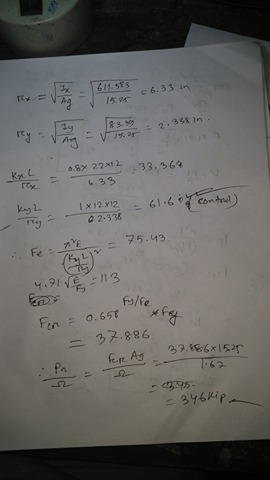 rx = √(Ix/Ag) = √(611.583/15.25) = 6.33 in
ry = √(Iy/Ag) = √(83.39/15.25) = 2.338 in.
KxL/rx = 0.8×22×12/6.33 = 33.364
KyL/ry = 1×12×12/2.338 = 61.6 (control)
∴ Fe = π²E/(KyL/ry)² = 75.43
4.71 √(E/Fy) = 113
Fcr = 0.658^(Fy/Fe) * Fy
= 37.886
∴ Pn/Ω = Fcr Ag/Ω = 37.886×15.25/1.67
= 345
= 346 kip